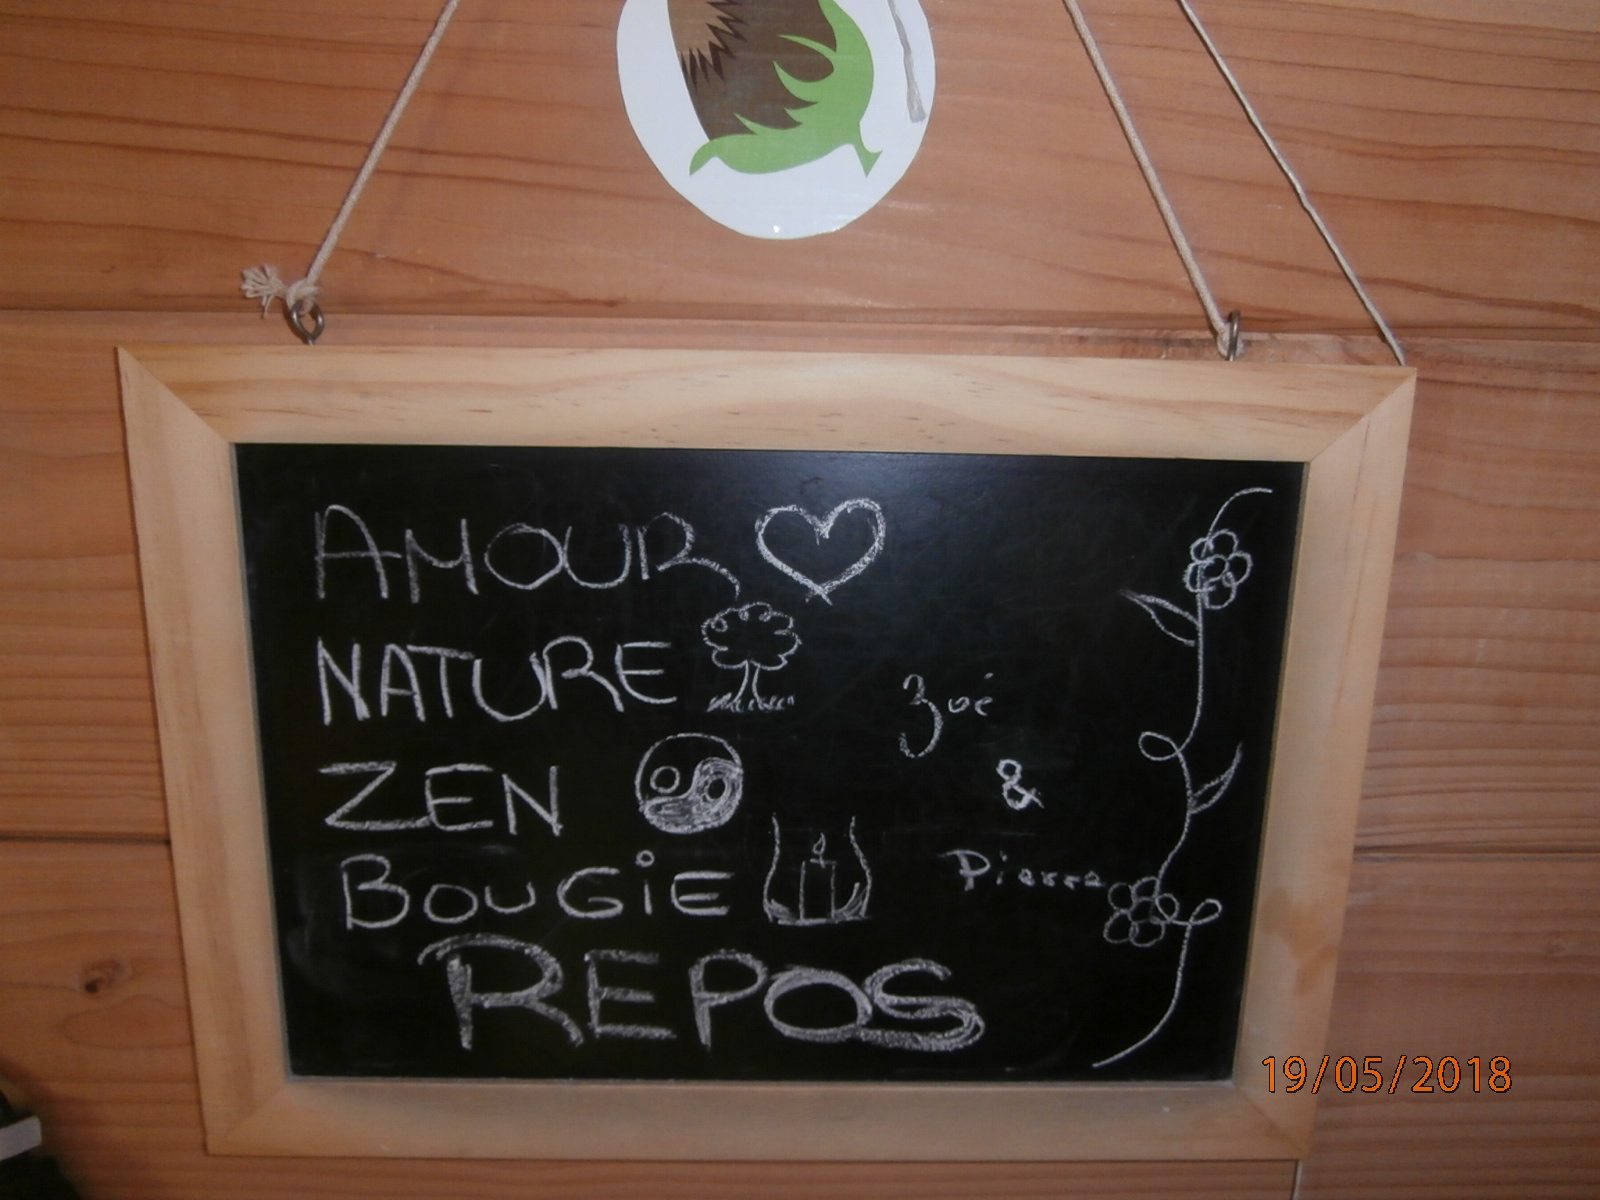 AMOUR
NATURE
ZEN
BOUGiE
REPOS
Zoé
&
Pierre
19/05/2018